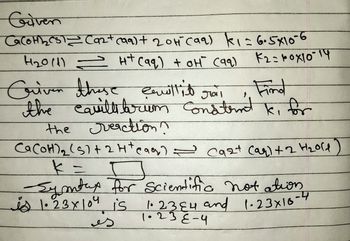 Given
Ca(OH)2(s) ⇌ Ca2+(aq) + 2 OH-(aq) K1 = 6.5x10-6
H2O(l) ⇌ H+(aq) + OH-(aq) K2 = 1.0x10-14
Given these equilibria, Find
the equilibrium Constand K, for
the reaction?
Ca(OH)2(s) + 2H+(aq) ⇌ Ca2+(aq) + 2H2O(l)
K =
Syntax for Scientific notation
is 1.23x104 is 1.23E4 and 1.23x10-4
is 1.23E-4